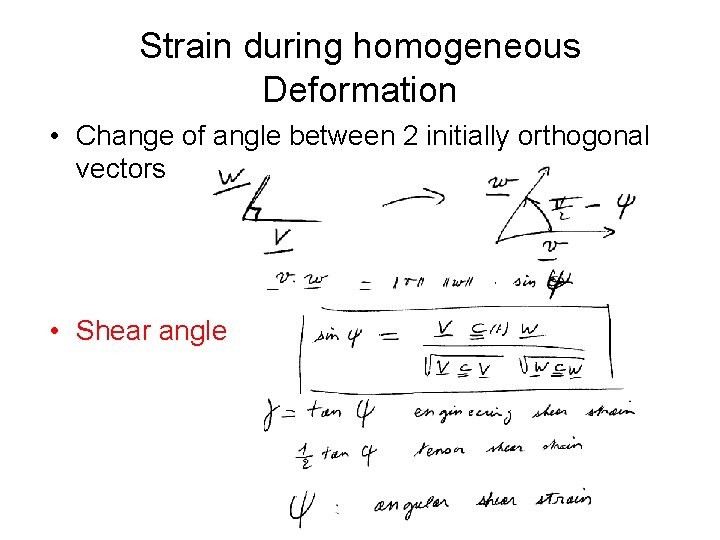 Strain during homogeneous
Deformation
• Change of angle between 2 initially orthogonal
vectors
W
V
w
π/2 - ψ
v
v · w = ||v|| ||w|| · sin ψ
• Shear angle
sin ψ = V C(t) W / √(V C V) √(W C W)
γ = tan ψ engineering shear strain
1/2 tan ψ tensor shear strain
ψ : angular shear strain